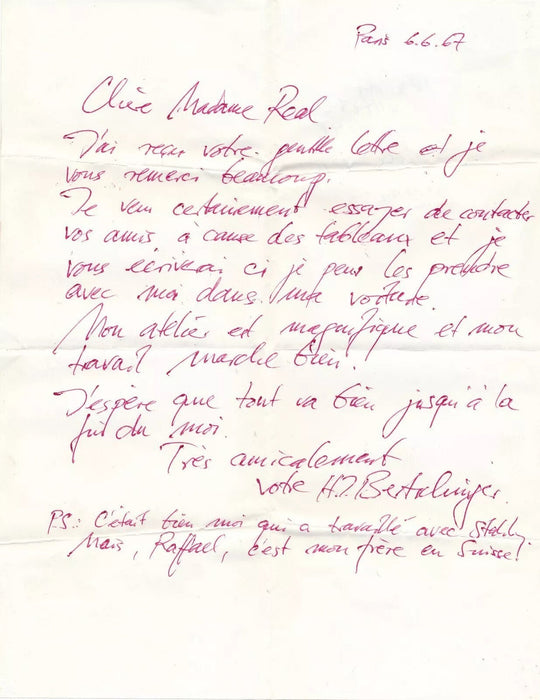 Paris 6.6.67
Chère Madame Real
J'ai reçu votre gentille lettre et je
vous remerci beaucoup.
Je veux certainement essayer de contacter
vos amis à cause des tableaux et je
vous écriverai ci je peux les prendre
avec moi dans ma voiture.
Mon atelier est magnifique et mon
travail marche bien.
J'espère que tout va bien jusqu'à la
fin du moi.
Très amicalement
votre H.J. Bertschinger.
PS: C'était bien moi qui a travaillé avec
Mais, Raffael, c'est mon frère en Suisse!